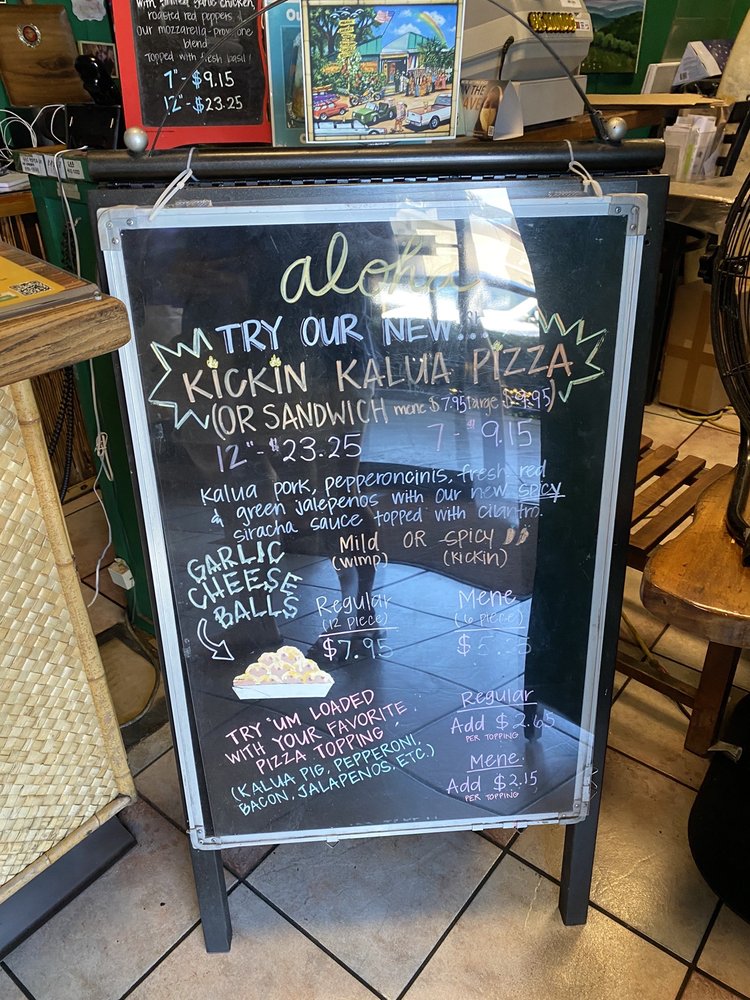 with grilled garlic chicken,
roasted red peppers &
our mozzarella-provolone
blend
Topped with fresh basil!
7"-$9.15
12"-$23.25
aloha
TRY OUR NEW...
KICKIN KALUA PIZZA
(OR SANDWICH mene $7.95 large $9.95)
12"-$23.25 7-"9.15
kalua pork, pepperoncinis, fresh red
& green jalepenos with our new spicy
siracha sauce topped with cilantro.
Mild OR spicy
(wimp) (kickin)
GARLIC
CHEESE
BALLS
Regular Mene
(12 piece) (6 piece)
$7.95
TRY 'UM LOADED
WITH YOUR FAVORITE
PIZZA TOPPING
(KALUA PIG, PEPPERONI,
BACON, JALAPENOS, ETC.)
Regular
Add $2.65
PER TOPPING
Mene
Add $2.15
PER TOPPING